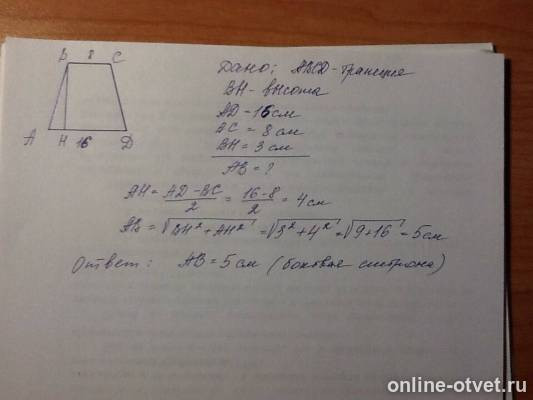 B 8 C
A H 16 D
Дано: ABCD - трапеция
BH - высота
AD - 16 см
BC = 8 см
BH = 3 см
AB = ?
AH = AD - BC / 2 = 16 - 8 / 2 = 4 см
AB = √BH² + AH² = √3² + 4² = √9 + 16 = 5 см
Ответ: AB = 5 см (боковая сторона)
online-otvet.ru